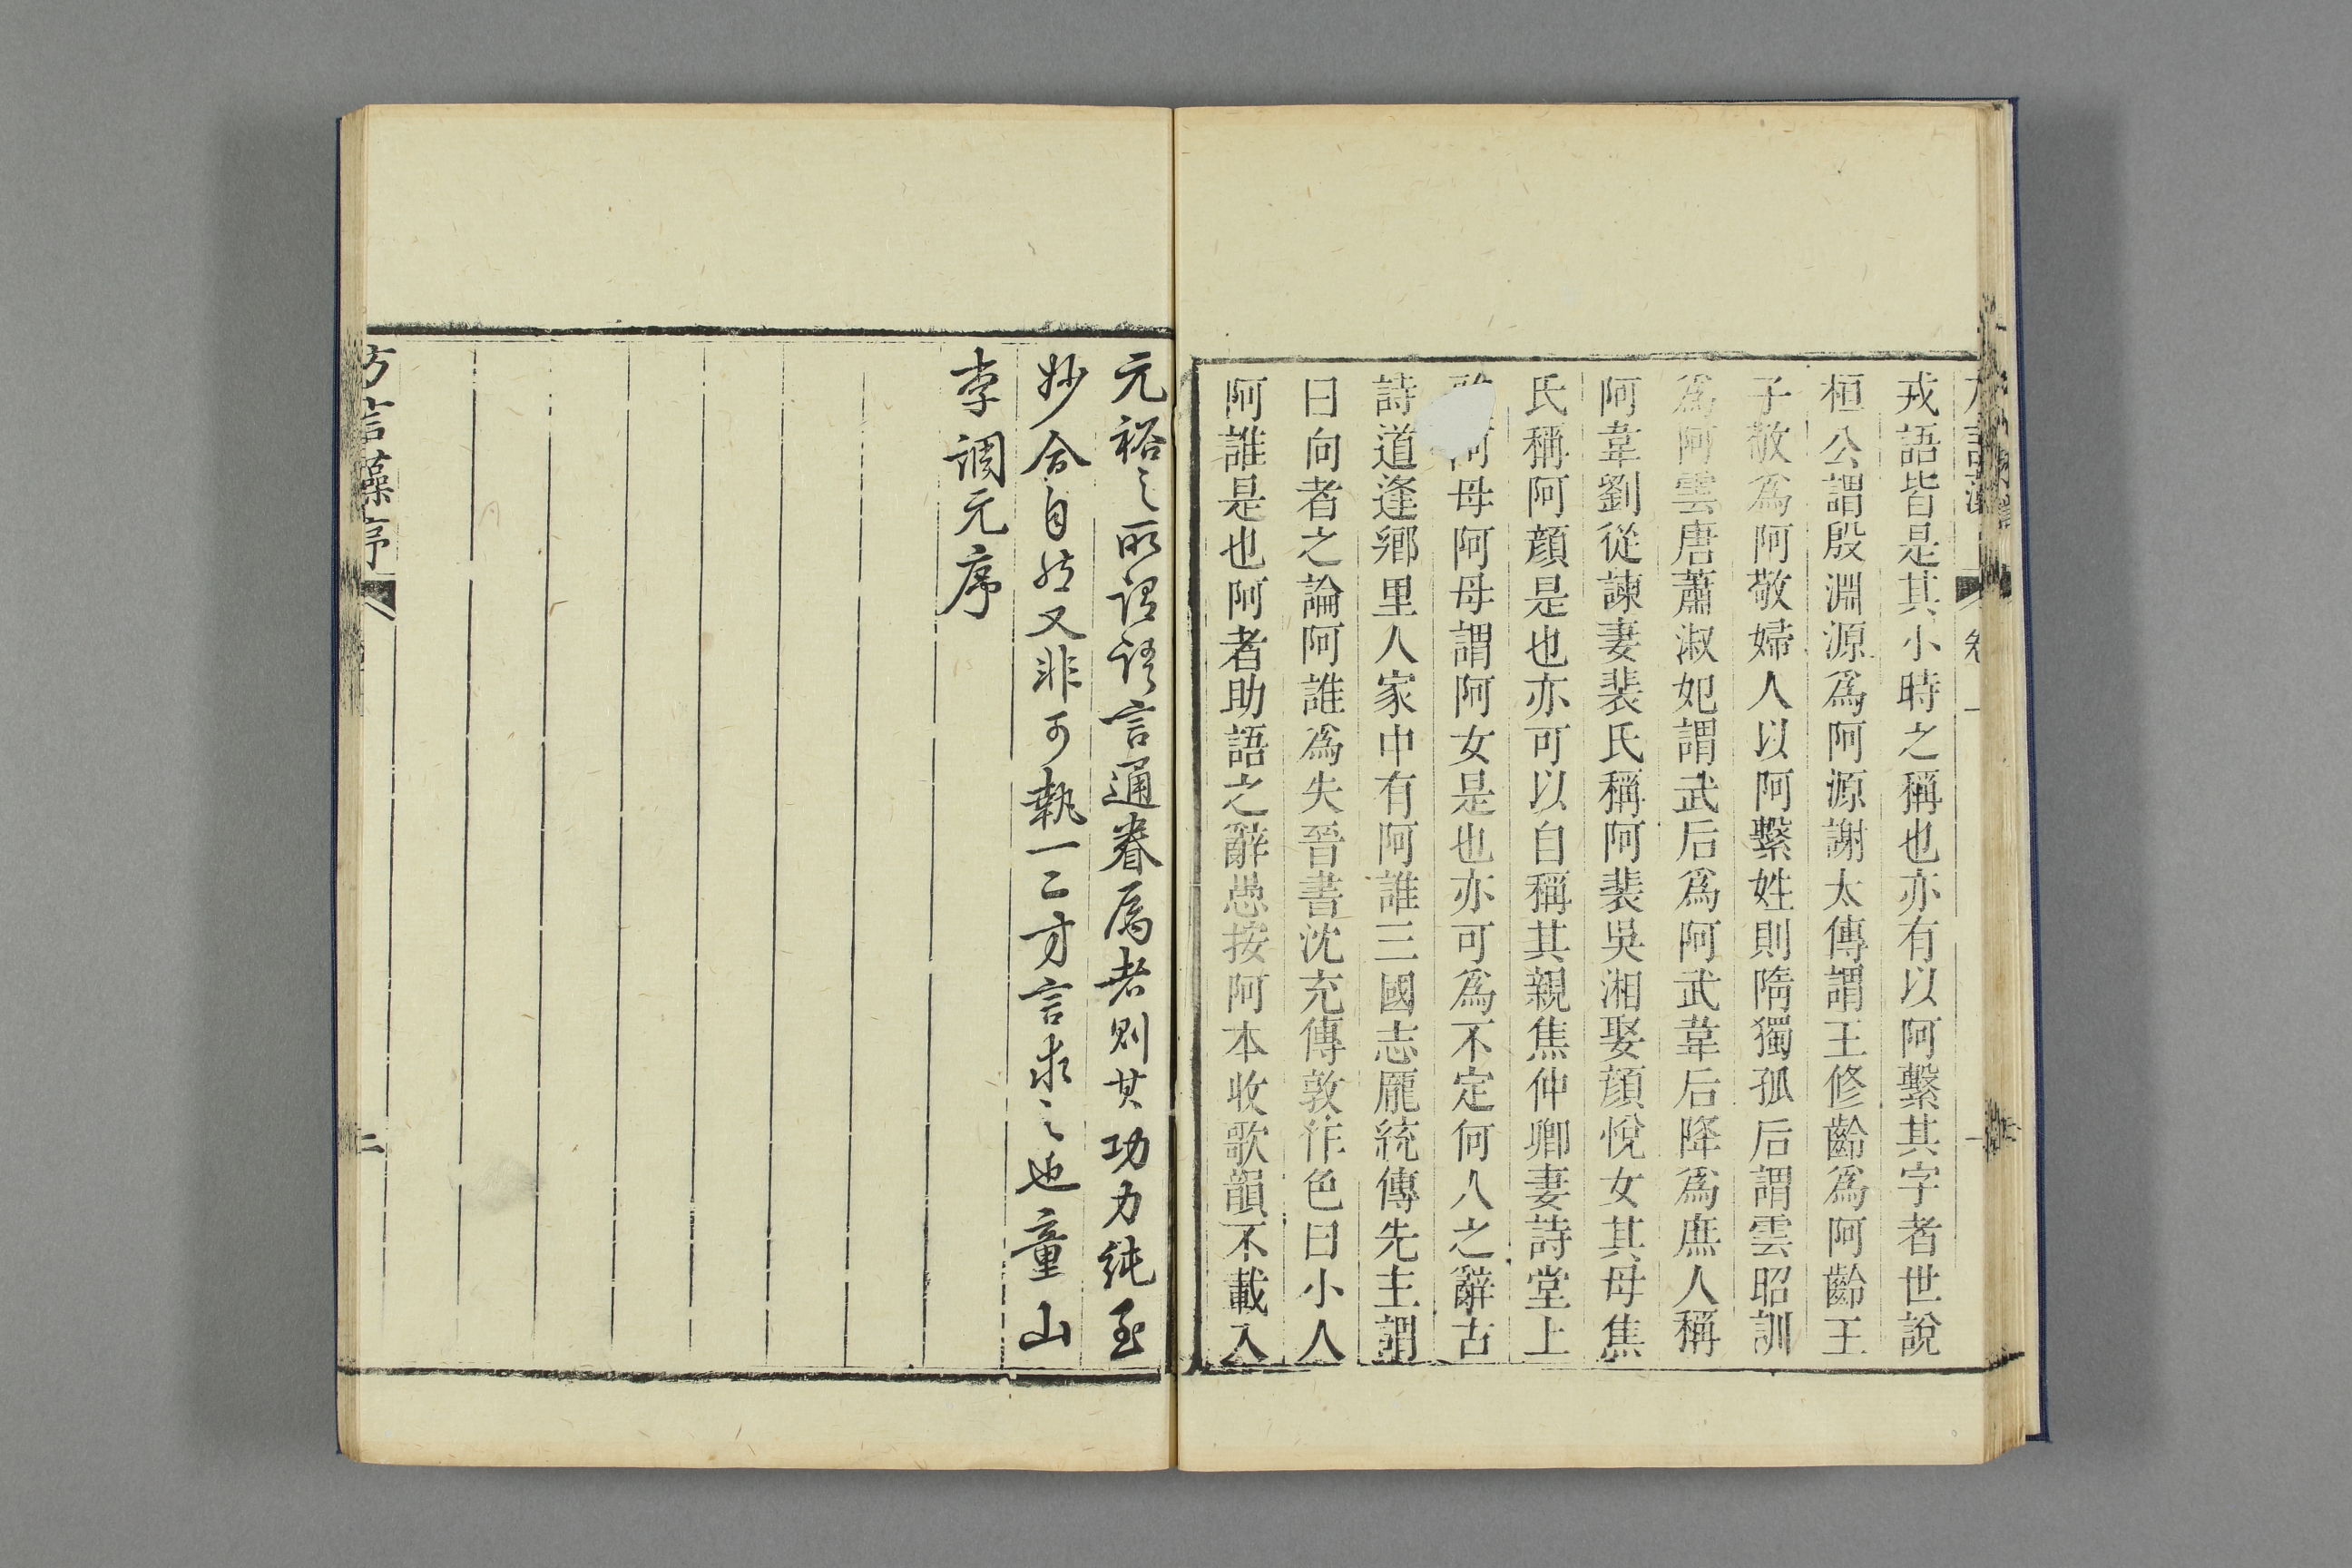 方言藻
卷一
戎語皆是其小時之稱也亦有以阿繫其字者世說
桓公謂殷淵源爲阿源謝太傅謂王修齡爲阿齡王
子敬爲阿敬婦人以阿繫姓則隋獨孤后謂雲昭訓
爲阿雲唐蕭淑妃謂武后爲阿武韋后降爲庶人稱
阿韋劉從諫妻裴氏稱阿裴吳湘娶顔悅女其母焦
氏稱阿顔是也亦可以自稱其親焦仲卿妻詩堂上
阿母阿母謂阿女是也亦可爲不定何人之辭古
詩道逢鄉里人家中有阿誰三國志龐統傳先主謂
曰向者之論阿誰爲失晉書沈充傳敦作色曰小人
阿誰是也阿者助語之辭愚按阿本收歌韻不載入
元裕之所謂語言通眷屬者則其功力純至
妙合自然又非可執一二方言求之也童山
李調元序
方言藻序
二